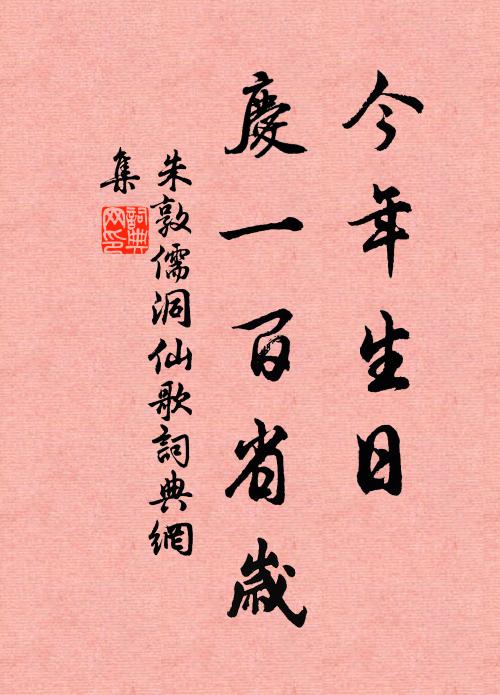 今年生日
慶一百省歲
朱敦儒洞仙歌詞典網
集
詞典
网印